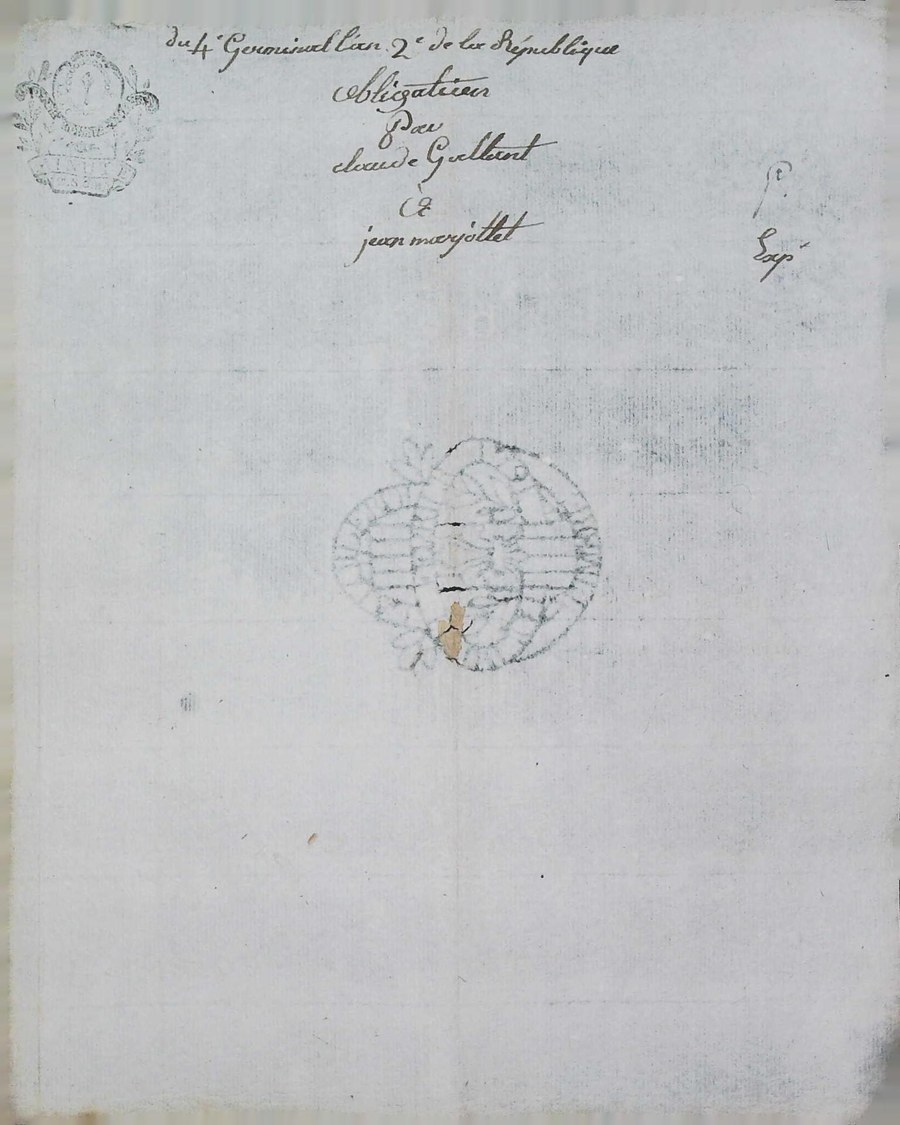 du 4e Germinal l'an 2e de la République
obligation
Par
claude Gallant
à
jean marjollet
Expé